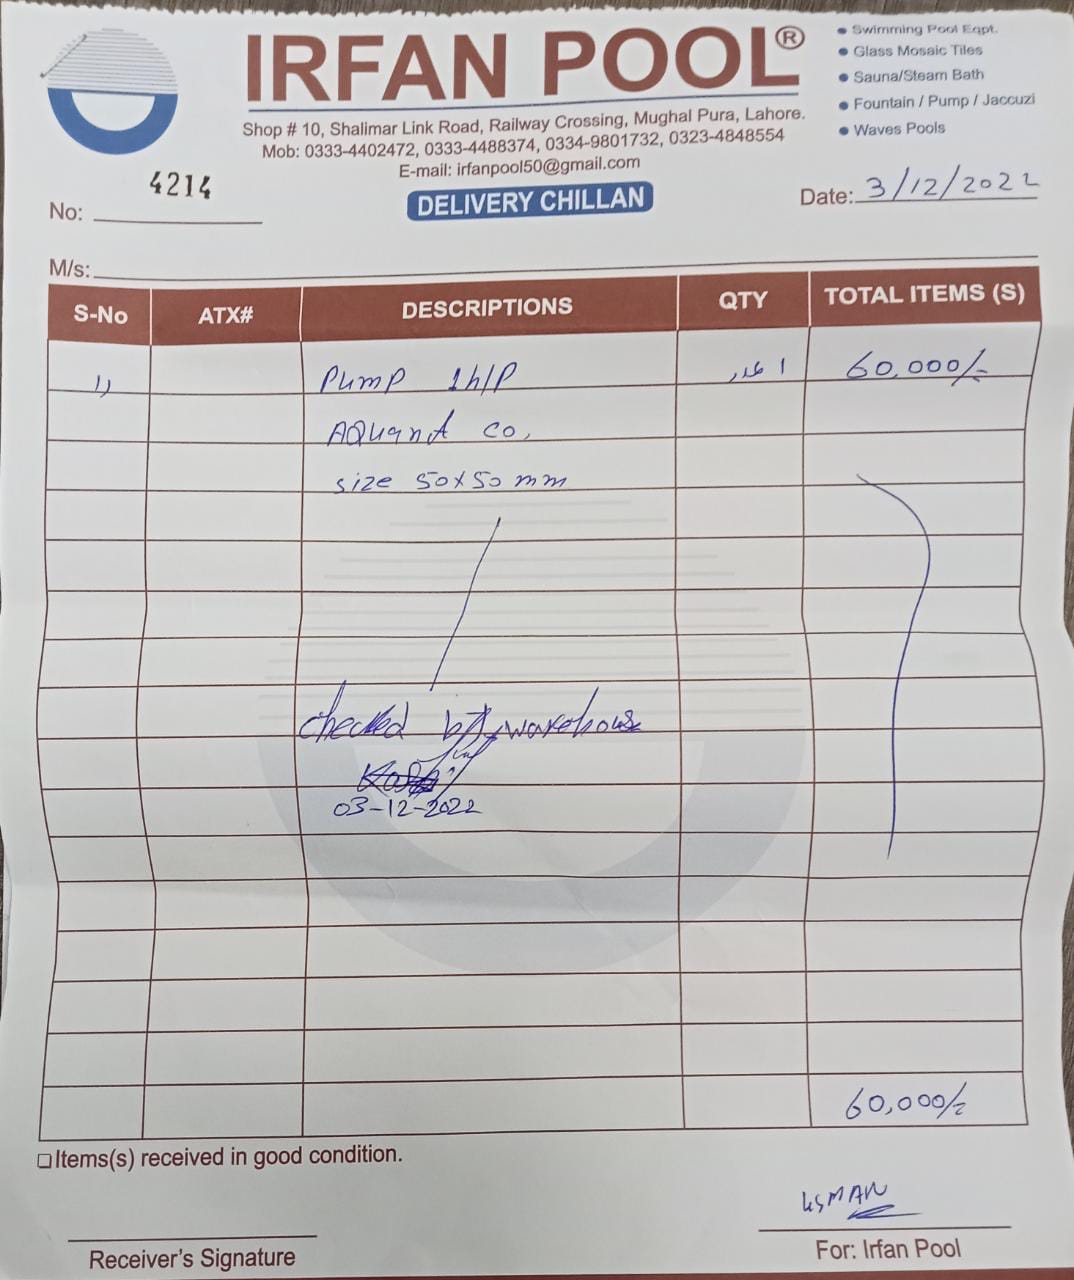 IRFAN POOL®
Shop # 10, Shalimar Link Road, Railway Crossing, Mughal Pura, Lahore.
Mob: 0333-4402472, 0333-4488374, 0334-9801732, 0323-4848554
E-mail: irfanpool50@gmail.com
• Swimming Pool Eqpt.
• Glass Mosaic Tiles
• Sauna/Steam Bath
• Fountain / Pump / Jaccuzi
• Waves Pools
No: 4214
DELIVERY CHILLAN
Date: 3/12/2022
M/s:
S-No ATX# DESCRIPTIONS QTY TOTAL ITEMS (S)
1) Pump 1h/P ا عدد 60,000/-
AQuanA co,
size 50x50 mm
checked by warehouse
03-12-2022
60,000/-
Items(s) received in good condition.
USMAN
Receiver's Signature
For: Irfan Pool